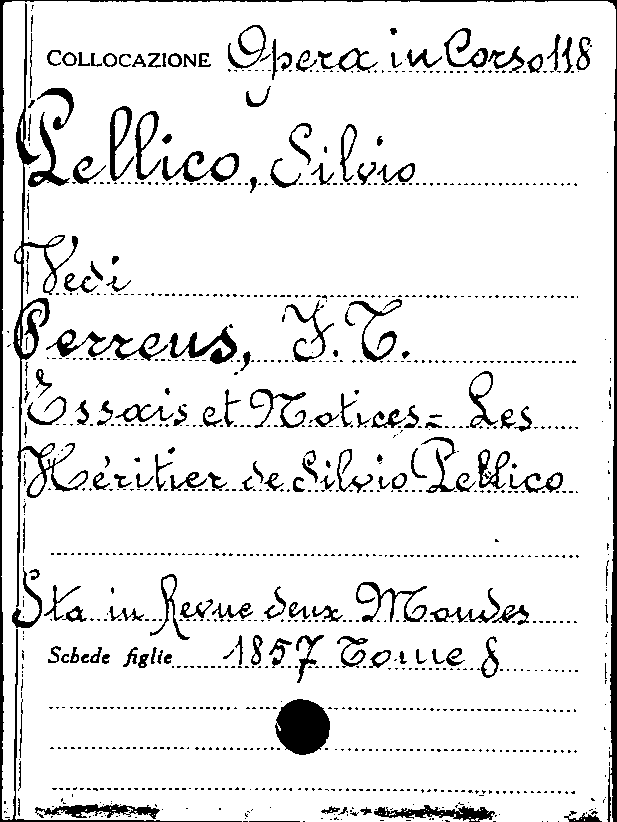 COLLOCAZIONE Opera in Corso 118
Pellico, Silvio
Vedi
Perreus, F. T.
Essais et Notices = Les
Héritier de Silvio Pellico
Sta in Revue deux Mondes
Schede figlie 1857 Tome 8